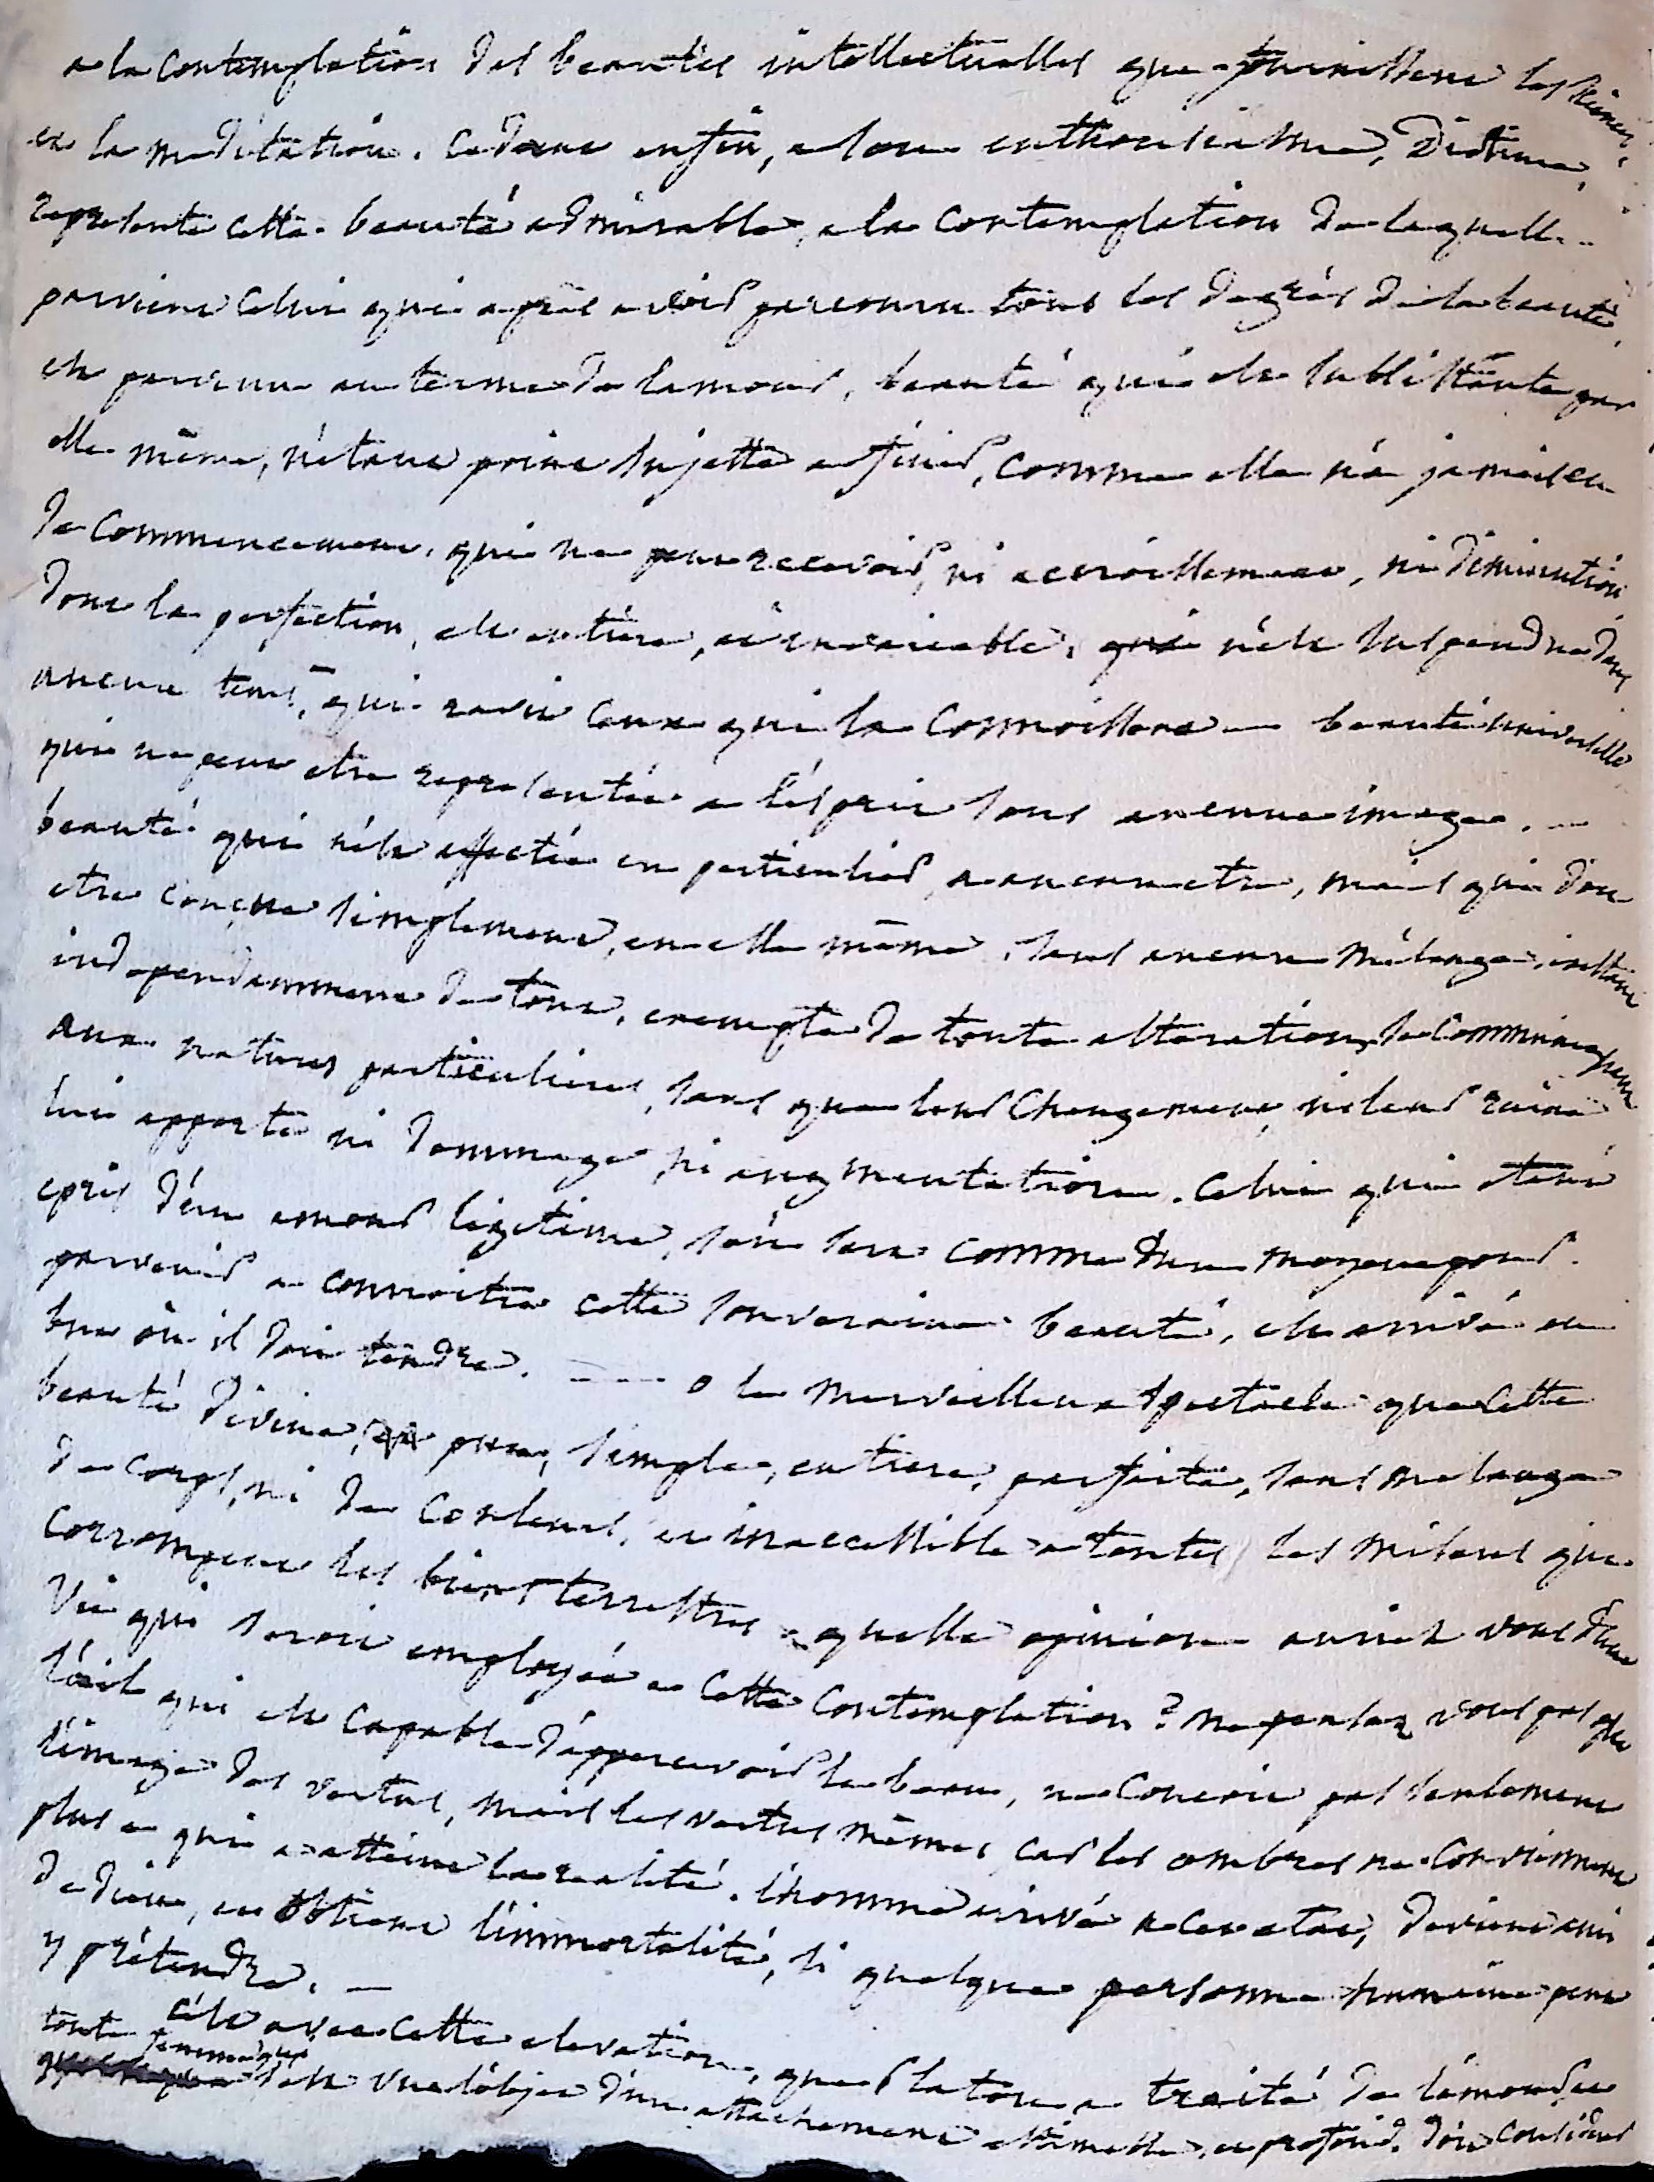 a la contemplation des beautés intellectuelles que fournissent les sciences
et la meditation. cedant enfin, a son enthousiasme, Diotime,
represente cette beauté admirable, a la contemplation de laquelle
parvient celui qui apres avoir parcouru tous les degrés de la beauté,
est parvenu au terme de lamour, beauté qui est subsistante par
elle même, n'etant point sujette a finir, comme elle n'a jamais eu
de commencement, qui ne peut recevoir, ni accroissement, ni diminution
dont la perfection, est entiere, et invariable, qui n'est suspendue dans
aucun tems, qui ravit ceux qui la connoissent — beauté universelle
qui ne peut etre representée a l'esprit sous aucune image. —
beauté qui n'est affectée en particulier, a aucun etre, mais qui doit
etre conçue simplement, en elle même, sans aucun mélange, existant
independamment de tout, exempte de toute alteration, se communiquant
aux natures particulieres, sans que leur changement, ni leur ruine
lui apporte ni dommage, ni augmentation. Celui qui etant
epris d'un amour légitime, s'en sert comme d'un moyen pour
parvenir a connoitre cette souveraine beauté, est arrivé au
but où il doit tendre. — o le merveilleux spectacle que cette
beauté divine, pure, simple, entiere, parfaite, sans melange
de corps, ni de couleurs, et inaccessible a toutes les miseres qui
corrompent les biens terrestres, quelle opinion auriez vous d'une
vie qui seroit employée a cette contemplation? ne pensez vous pas que
l'œil qui est capable d'appercevoir le beau, ne conçoit pas seulement
l'image des vertus, mais les vertus mêmes, car les ombres ne conviennent
plus a qui a atteint la realité. l'homme arrivé a cet etat, devient ami
de dieu, et obtient l'immortalité, si quelque personne humaine peut
y prétendre. —
c'est avec cette elevation, que Platon a traité de l'amour
toute femme qui s'est vue l'objet d'un attachement estimable, et profond, doit considerer